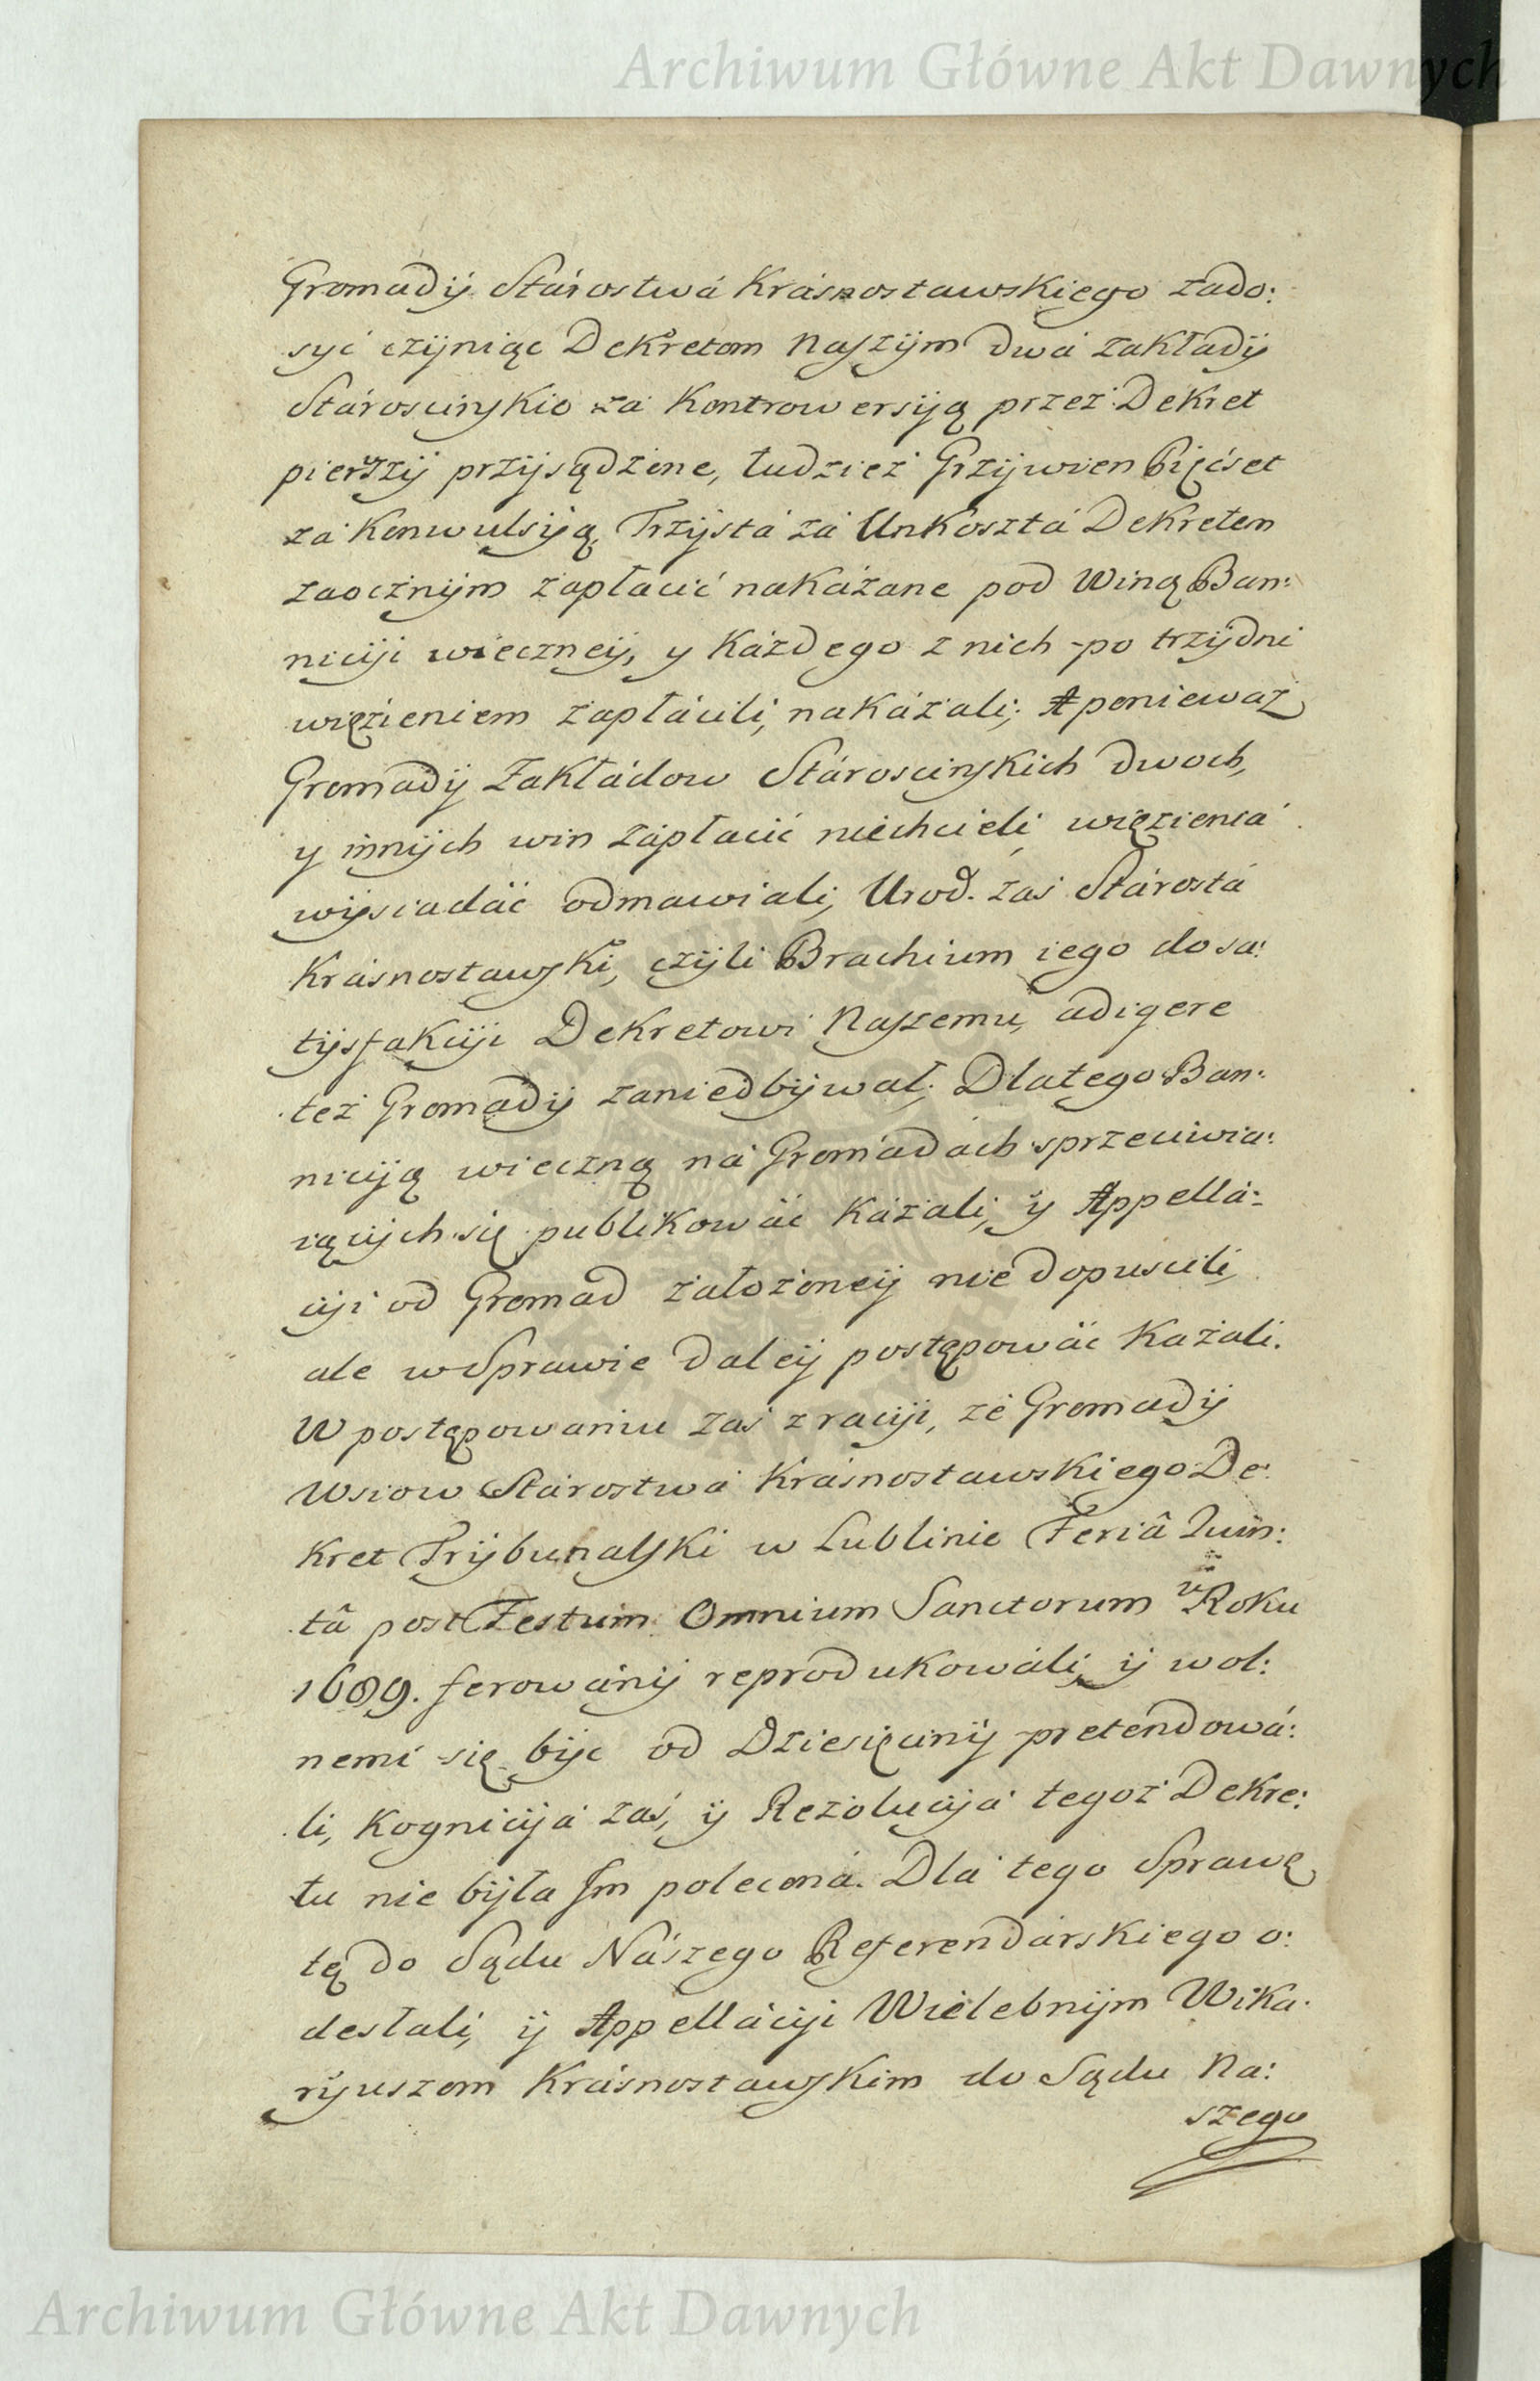 Archiwum Główne Akt Dawnych
Gromadÿ Stárostwá Krásnostawskiego zado:
syć czÿniąc Dekretom Naszÿm dwá zakładÿ
Stároscińskie zá Kontrowersÿą przez Dekret
pierwszÿ przÿsądzone, tudzież Grzÿwien Pięćset
zá Konwulsÿą, Trzÿstá zá Unkosztá Dekretem
zaocznÿm zapłacić nakázane pod Winą Ban:
nicÿi wiecznéÿ, y Káżdego z nich po trzÿ dni
więzieniem zapłácili, nakázali; A ponieważ
Gromadÿ Zakłádow Stároscińskich dwoch,
y innÿch win zápłacić niechcieli, więzieniá
wÿsiadáć odmawiali, Urod. záś Stárostá
Krásnostawski, czÿli Brachium iego do sa:
tÿsfakcÿi Dekretowi Naszemu, adigere
też Gromadÿ zaniedbÿwał; Dlatego Ban:
nicÿą wieczną ná Gromádách sprzeciwia:
iącÿch się publikowáć kázali, ÿ Appellá:
cÿi od Gromad założonéÿ nie dopuscili,
ale w Sprawie daléÿ postępowáć Kazáli.
W postępowaniu zaś z racÿi, że Gromadÿ
Wsiow Stárostwá Krásnostawskiego De:
kret Trÿbunalski w Lublinie Feriâ Quin:
tâ post Festum Omnium Sanctorum w Roku
1689. ferowánÿ reprodukowáli, ÿ wol:
nemi się bÿc od Dziesięcinÿ pretendowá:
li, Kognicÿá zaś, ÿ Rezolucÿá tegoż Dekre:
tu nie bÿła Im poleconá. Dla tego Sprawę
tę do Sądu Nászego Referendárskiego o:
desłali, ÿ Appellácÿi Wielebnÿm Wika:
rÿuszom Krásnostawskim do Sądu Na:
szego
Archiwum Główne Akt Dawnych